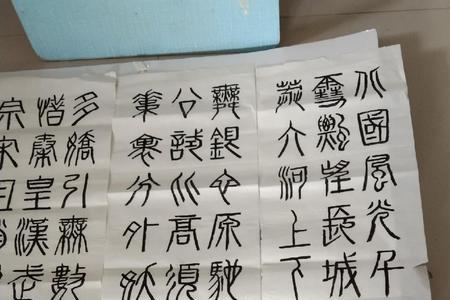 北國風光千
雪飄望長城
莽大河上下
舞銀蛇原馳
公試比高須
素裹分外妖
多嬌引無數
惜秦皇漢武
宗宋祖